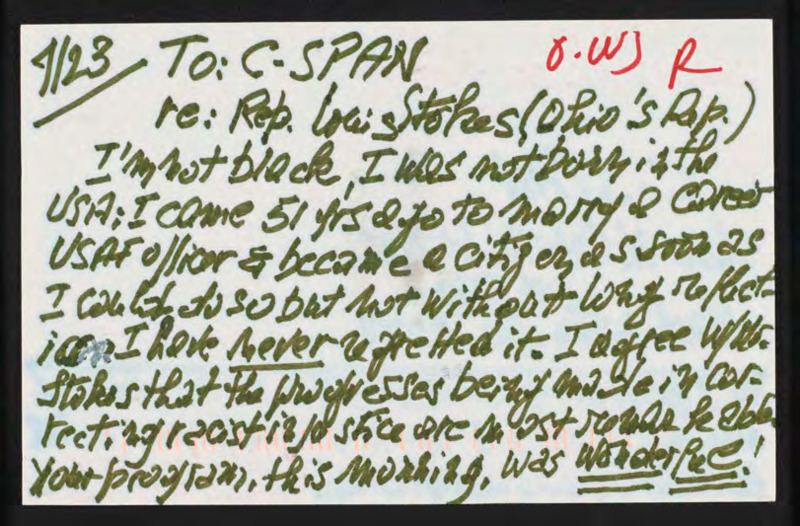 1/23 To: C-SPAN R
re: Rep. Louis Stokes (Ohio's Rep.)
I'm not black, I was not born in the
USA; I came 51 yrs ago to marry a career
USAF officer & became a citizen as soon as
I could do so but not without long reflect-
ion I have never regretted it. I agree w/Mr.
Stokes that the progresses being made in cor-
recting racist injustice are most remarkable
Your program, this morning, was wonderful!